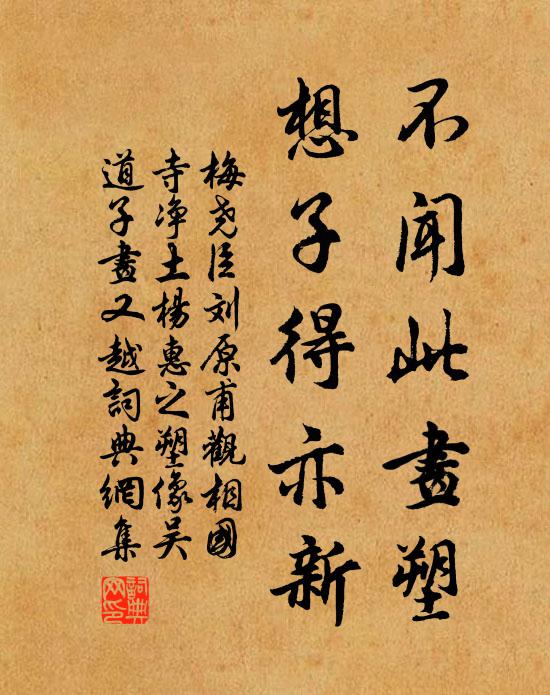 不聞此畫塑
想子得亦新
梅尧臣刘原甫觀相國
寺净土楊惠之塑像吴
道子畫又越詞典網集
詞典
网印